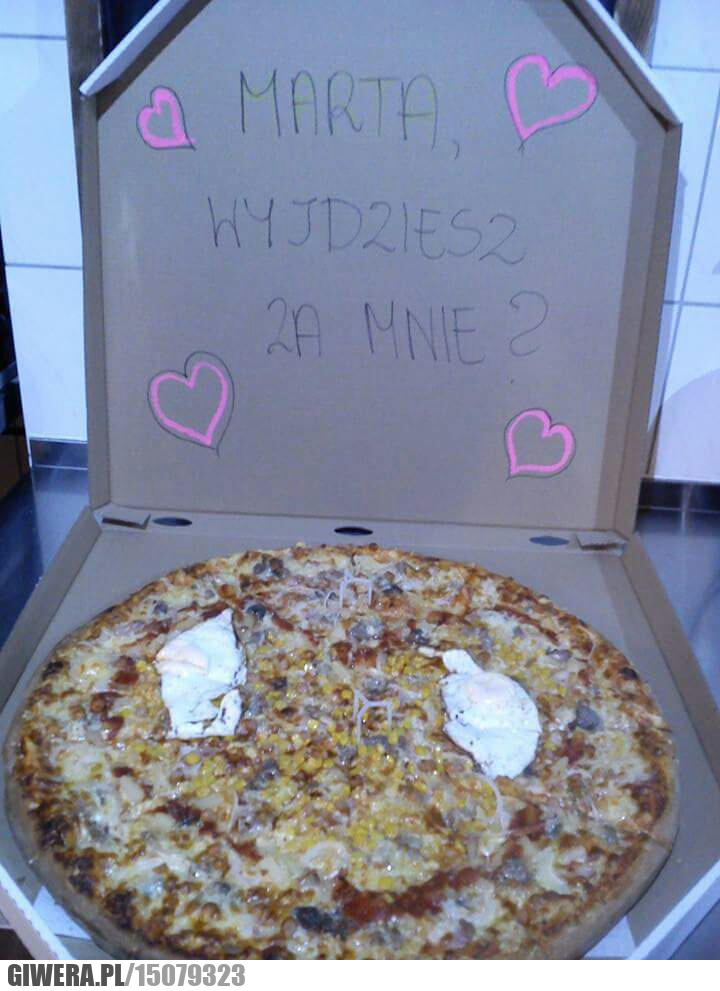 MARTA,
WYJDZIESZ
ZA MNIE?
GIWERA.PL/15079323